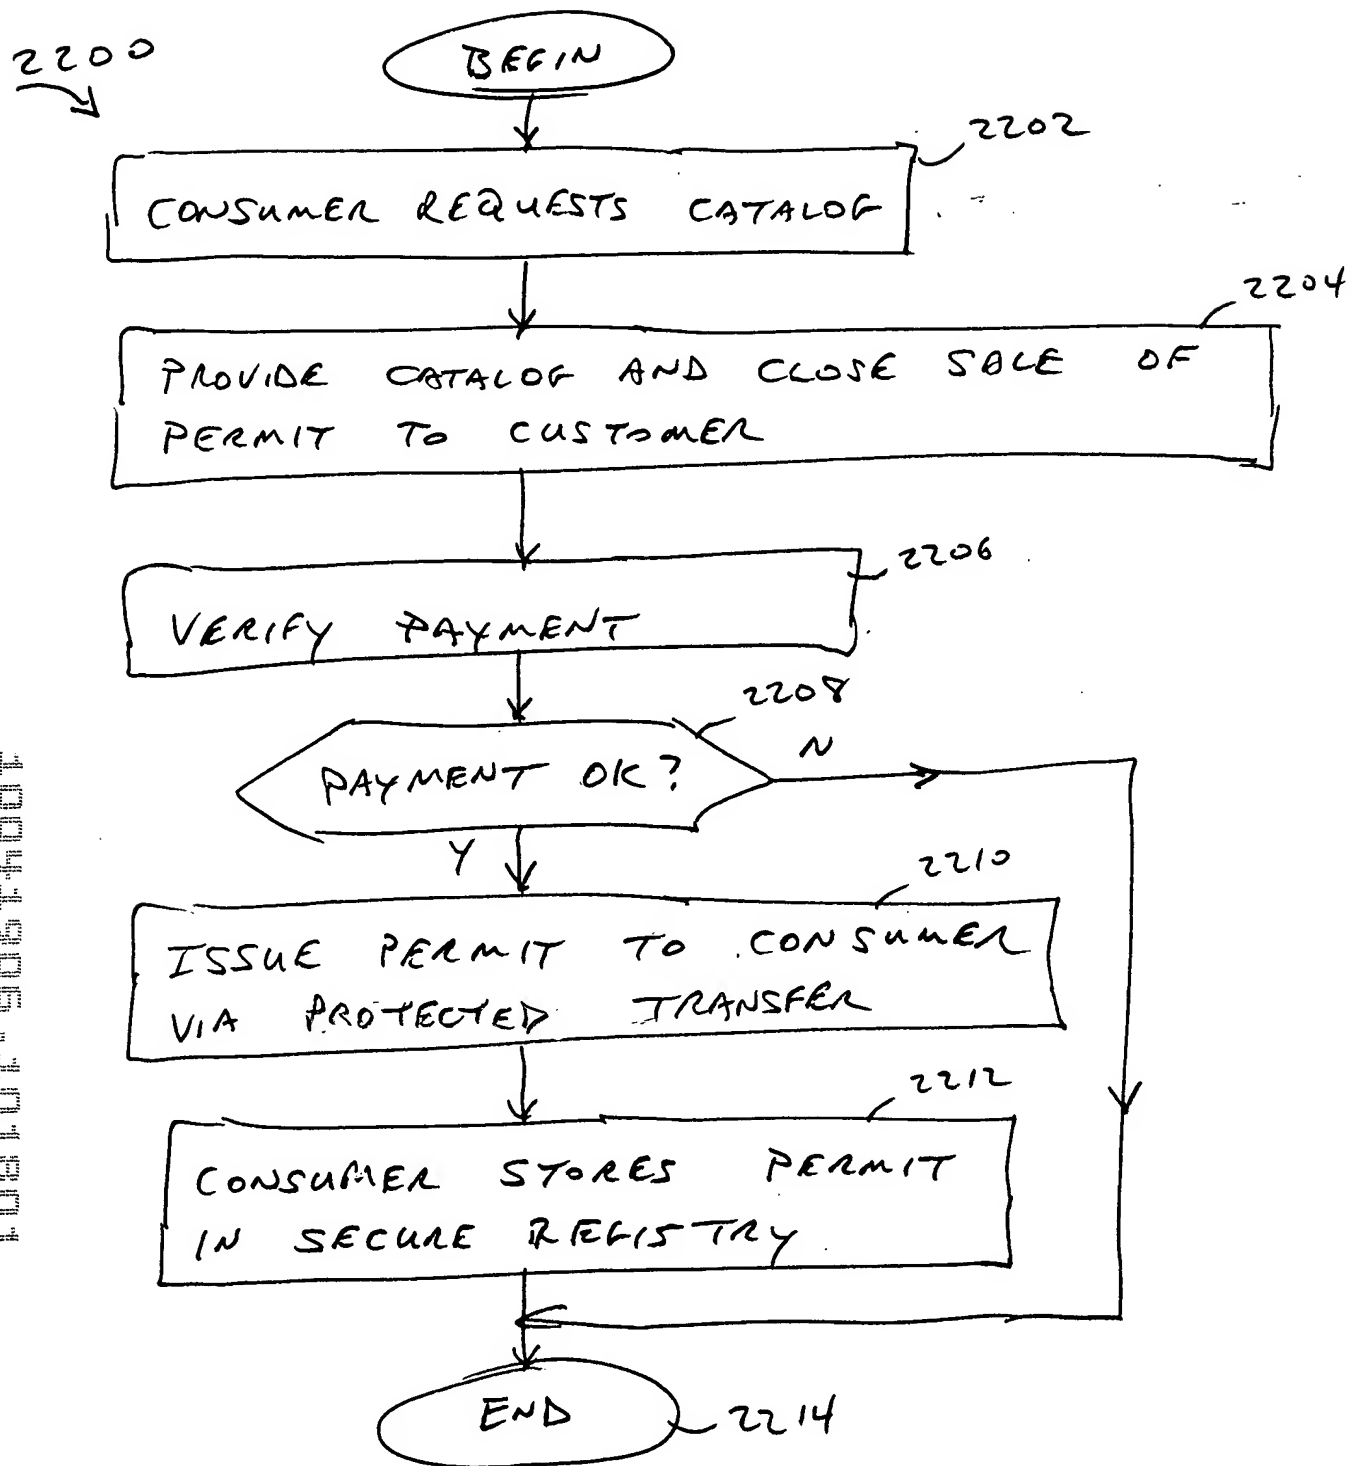 2200
BEGIN
2202
CONSUMER REQUESTS CATALOG
2204
PROVIDE CATALOG AND CLOSE SALE OF
PERMIT TO CUSTOMER
2206
VERIFY PAYMENT
2208
PAYMENT OK?
N
Y
2210
ISSUE PERMIT TO CONSUMER
VIA PROTECTED TRANSFER
2212
CONSUMER STORES PERMIT
IN SECURE REGISTRY
END
2214
10041906.101801